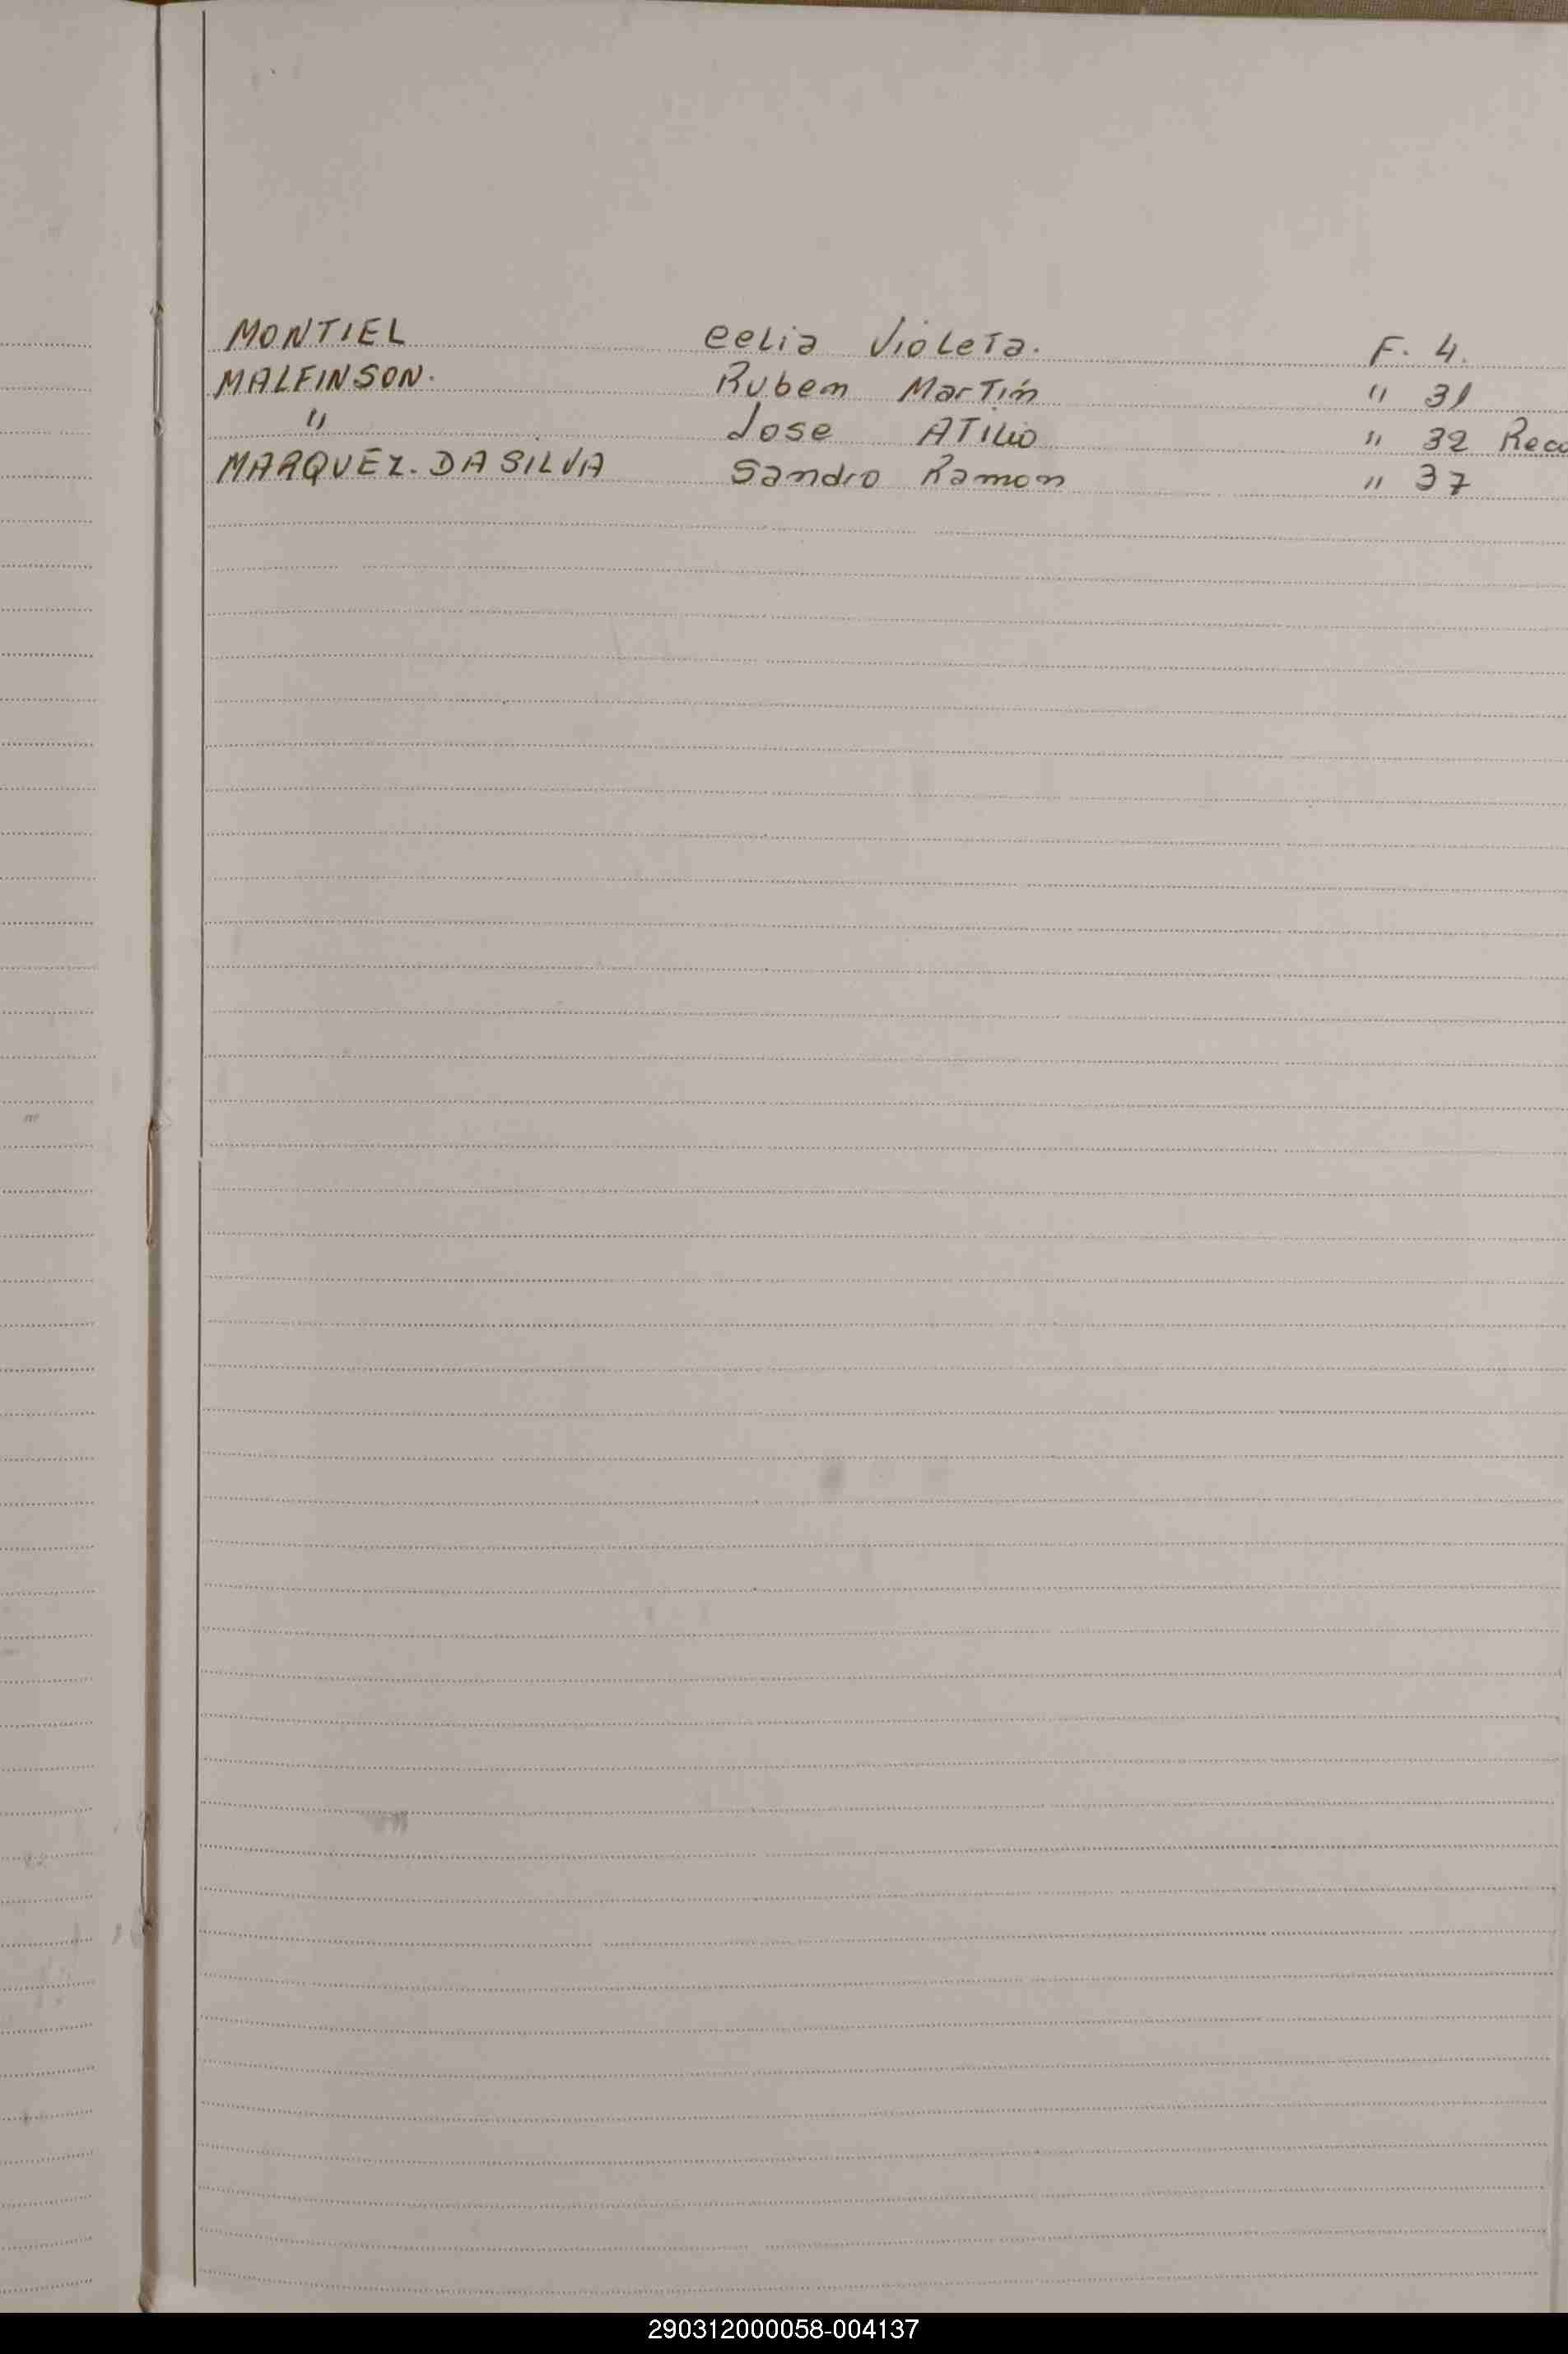 MONTIEL Celia Violeta. F. 4.
MALFINSON. Ruben Martín " 31
" Jose ATilio " 32 Reco
MARQUEZ. DA SILVA Sandro Ramon " 37
290312000058-004137